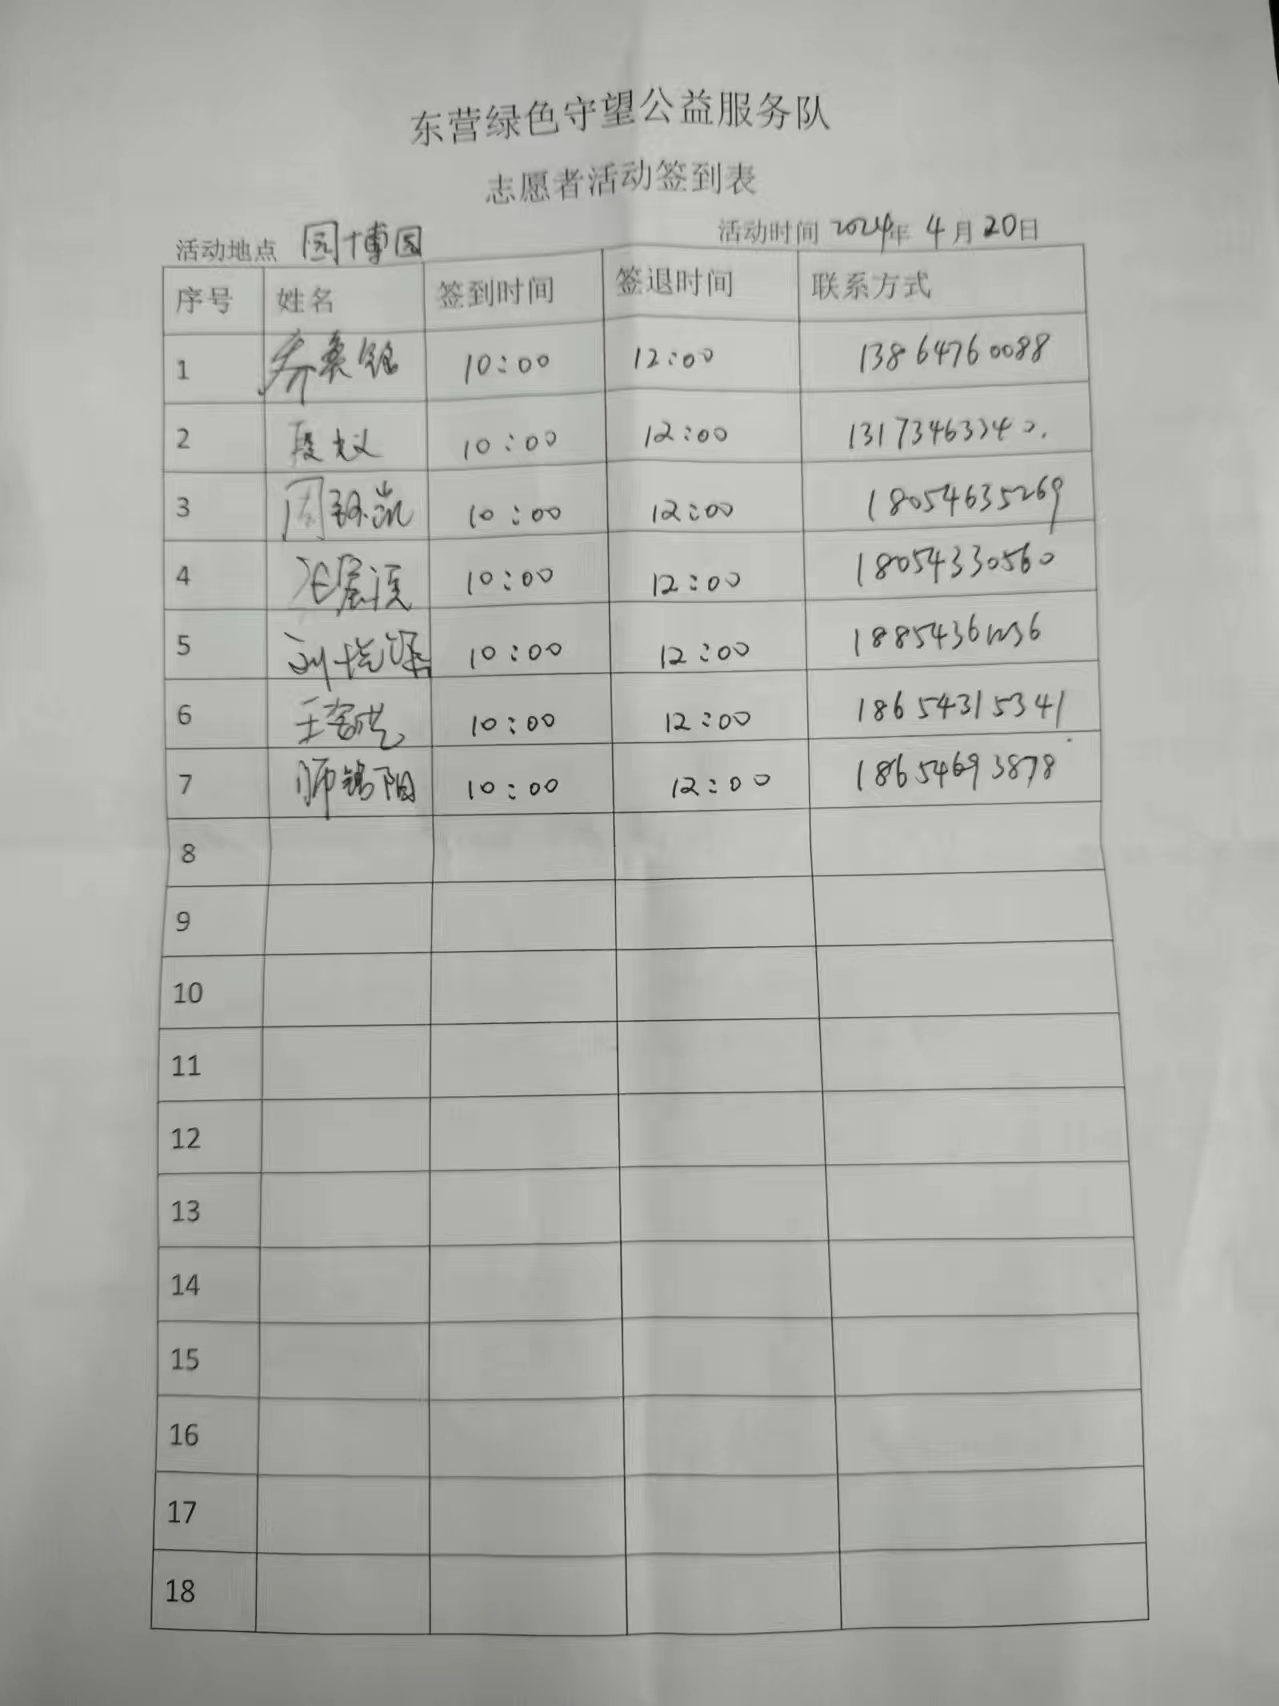 东营绿色守望公益服务队
志愿者活动签到表
活动地点 园博园 活动时间 2024年 4月20日
序号 姓名 签到时间 签退时间 联系方式
1 10:00 12:00 13864760088
2 10:00 12:00
3 10:00 12:00 18054635269
4 10:00 12:00 18054330560
5 10:00 12:00
6 10:00 12:00 18654315341
7 师锦阳 10:00 12:00 18654693878
8
9
10
11
12
13
14
15
16
17
18